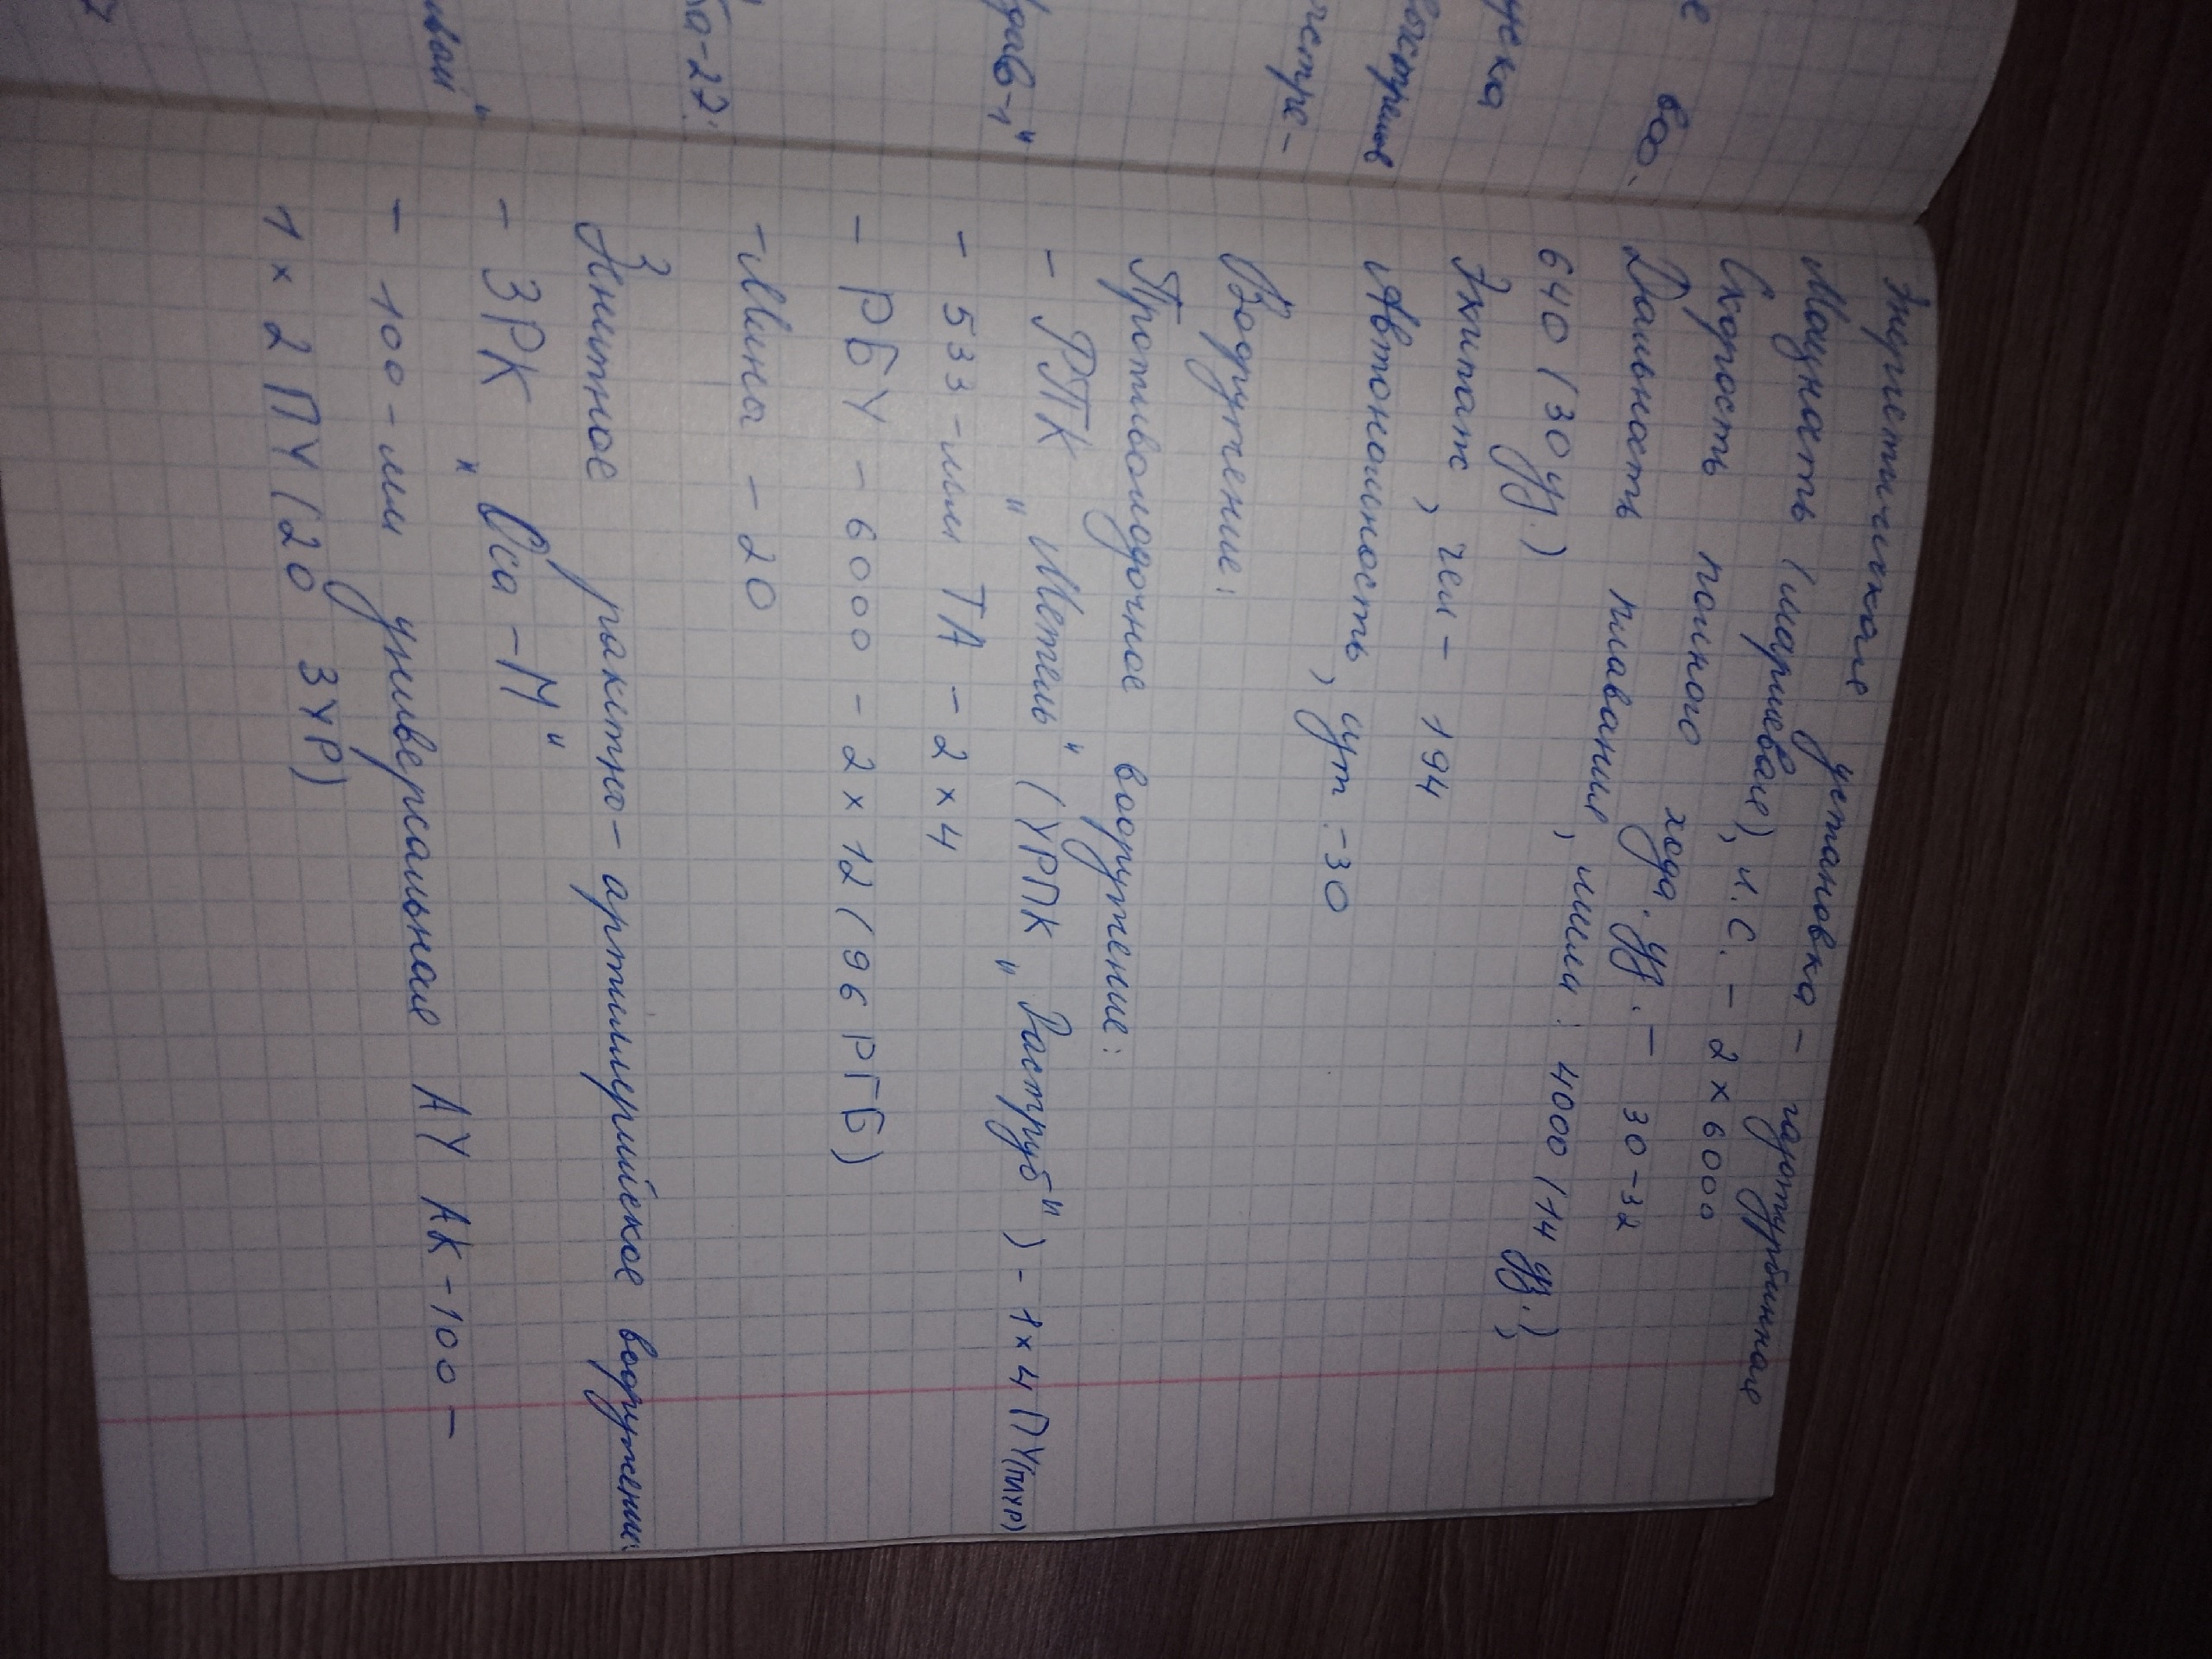 е воо.
уска
чстре-
"
а-22.
"
Энергетическая установка – газотурбинная
Мощность (маршевая), л.с. – 2 х 6000
Скорость полного хода, уз. – 30-32
Дальность плавания, мили: 4000 (14 уз.),
640 (30 уз.)
Экипаж, чел – 194
Автономность, сут. – 30
Вооружение:
Противолодочное вооружение:
– РТК „Метель" (УРПК „Раструб") – 1х4 ПУ (ПЛУР)
– 533-мм ТА – 2х4
– РБУ – 6000 – 2х12 (96 РГБ)
– Мины – 20
Зенитное ракетно-артиллерийское вооружение:
– ЗРК „Оса-М"
– 100-мм универсальная АУ АК-100 –
1х2 ПУ (20 ЗУР)